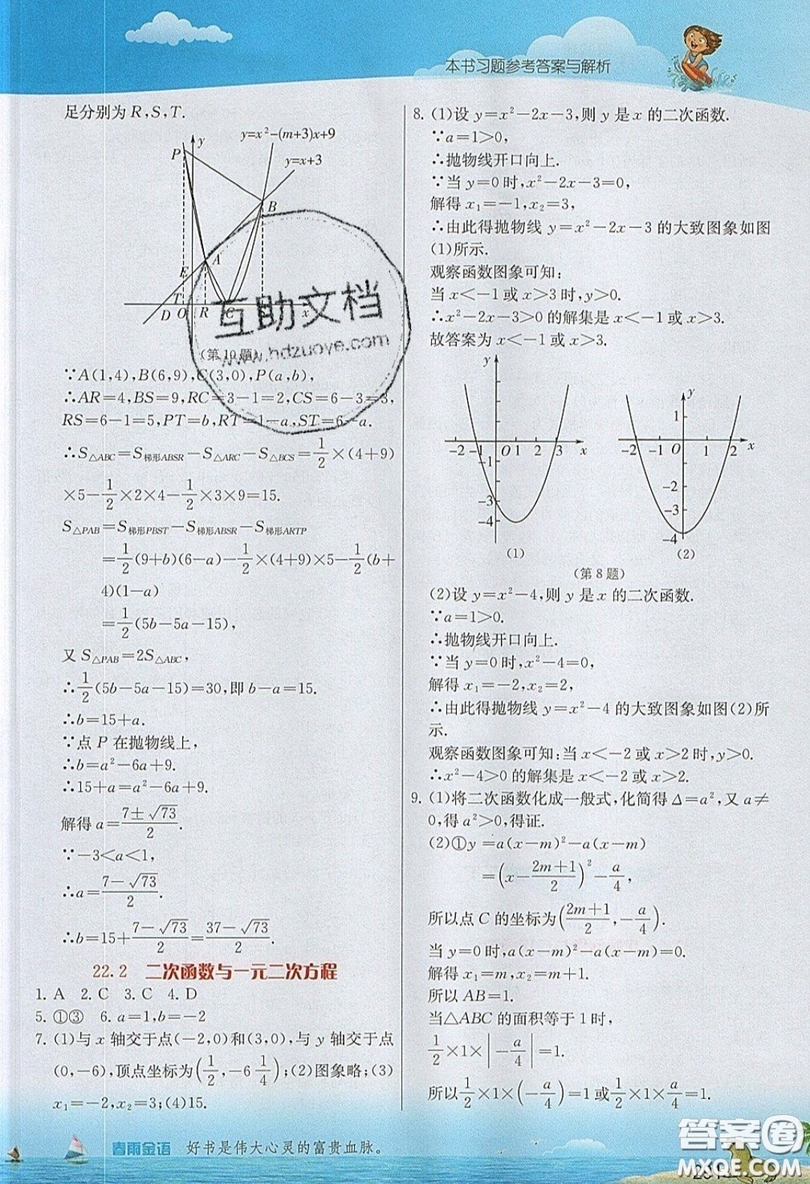 本书习题参考答案与解析
足分别为 R,S,T.
y=x²-(m+3)x+9
y=x+3
y
P
B
A
E
T
D O R C S x
(第 10 题)
∵A(1,4),B(6,9),C(3,0),P(a,b),
∴AR=4,BS=9,RC=3-1=2,CS=6-3=3,
RS=6-1=5,PT=b,RT=1-a,ST=6-a.
∴S△ABC=S梯形ABSR-S△ARC-S△BCS=1/2×(4+9)
×5-1/2×2×4-1/2×3×9=15.
S△PAB=S梯形PBST-S梯形ABSR-S梯形ARTP
=1/2(9+b)(6-a)-1/2×(4+9)×5-1/2(b+
4)(1-a)
=1/2(5b-5a-15),
又 S△PAB=2S△ABC,
∴1/2(5b-5a-15)=30,即 b-a=15.
∴b=15+a.
∵点 P 在抛物线上,
∴b=a²-6a+9.
∴15+a=a²-6a+9.
解得 a=(7±√73)/2.
∵-3<a<1,
∴a=(7-√73)/2.
∴b=15+(7-√73)/2=(37-√73)/2.
22.2 二次函数与一元二次方程
1. A 2. C 3. C 4. D
5. ①③ 6. a=1,b=-2
7. (1)与 x 轴交于点(-2,0)和(3,0),与 y 轴交于点
(0,-6),顶点坐标为(1/2,-6 1/4);(2)图象略;(3)
x₁=-2,x₂=3;(4)15.
8. (1)设 y=x²-2x-3,则 y 是 x 的二次函数.
∵a=1>0,
∴抛物线开口向上.
∵当 y=0 时,x²-2x-3=0,
解得 x₁=-1,x₂=3,
∴由此得抛物线 y=x²-2x-3 的大致图象如图
(1)所示.
观察函数图象可知:
当 x<-1 或 x>3 时,y>0.
∴x²-2x-3>0 的解集是 x<-1 或 x>3.
故答案为 x<-1 或 x>3.
y
-2 -1 O 1 2 3 x
-1
-3
-4
(1)
y
1
-2 -1 O 1 2 x
-3
-4
(2)
(第 8 题)
(2)设 y=x²-4,则 y 是 x 的二次函数.
∵a=1>0.
∴抛物线开口向上.
∵当 y=0 时,x²-4=0,
解得 x₁=-2,x₂=2,
∴由此得抛物线 y=x²-4 的大致图象如图(2)所
示.
观察函数图象可知:当 x<-2 或 x>2 时,y>0.
∴x²-4>0 的解集是 x<-2 或 x>2.
9. (1)将二次函数化成一般式,化简得 Δ=a²,又 a≠
0,得 a²>0,得证.
(2)①y=a(x-m)²-a(x-m)
=(x-(2m+1)/2)²-a/4,
所以点 C 的坐标为((2m+1)/2,-a/4).
当 y=0 时,a(x-m)²-a(x-m)=0.
解得 x₁=m,x₂=m+1.
所以 AB=1.
当△ABC 的面积等于 1 时,
1/2×1×|-a/4|=1.
所以1/2×1×(-a/4)=1或1/2×1×a/4=1.
春雨金语 好书是伟大心灵的富贵血脉。
互助文档
www.hdzuoye.com
答案圈
MXQE.COM